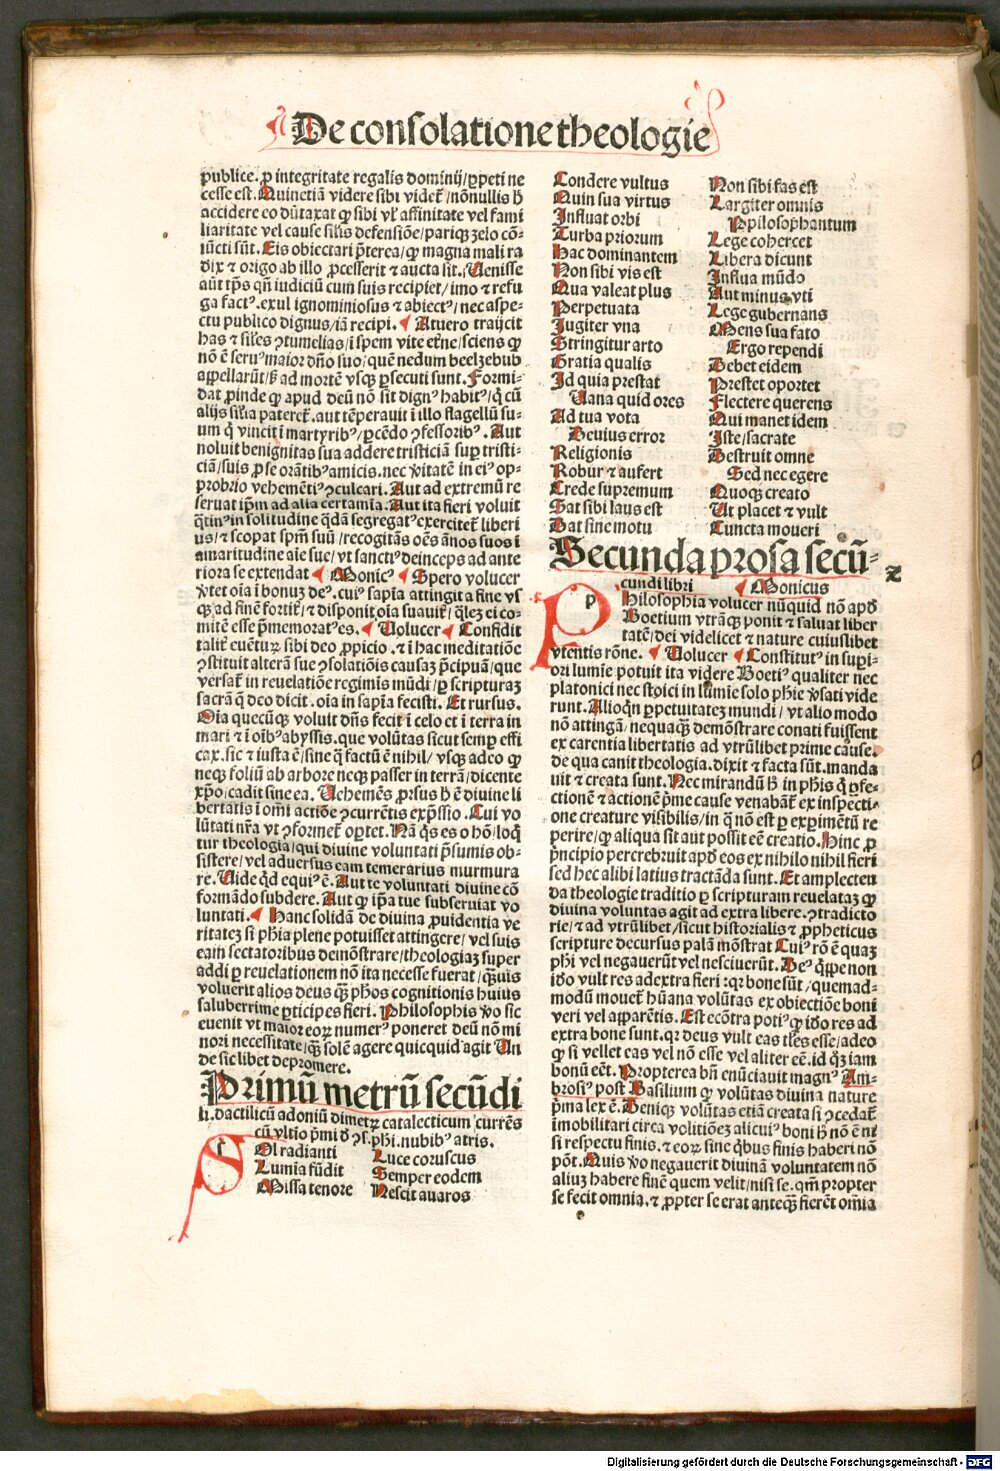 De consolatione theologie
publice. ꝓ integritate regalis dominij/ꝑpeti ne
cesse est. Quinetiã videre sibi videt᷑/nõnullis h̃
accidere eo dũtaxat ꝙ sibi vl᷑ affinitate vel fami
liaritate vel cause sil̃is defensiõe/pariqꝫ zelo cõ-
iũcti sũt. Eis obiectari p̃terea/ꝙ magna mali ra
dix ⁊ origo ab illo ꝓcesserit ⁊ aucta sit. Uenisse
aũt tp̃s qñ iudiciũ cum suis recipiet/imo ⁊ refu
ga factꝰ.exul ignominiosus ⁊ abiectꝰ/nec aspe-
ctu publico dignus/iã recipi. Atuero traijcit
has ⁊ sil̃es ꝯtumelias/ĩ spem vite et̃ne/sciens ꝙ
nõ ẽ seruꝰ maior dño suo/quẽ nedum beelzebub
appellarũt/sꝫ ad mortẽ vsqꝫ ꝑsecuti sunt. Formi-
dat ꝓinde ꝙ apud deũ nõ sit dignꝰ habitꝰ/q̇ cũ
alijs sil̃ia pateret᷑.aut tẽperauit ĩ illo flagellũ su-
um q̇ vincit ĩ martyribꝰ/ꝑcẽdo ꝯfessoribꝰ. Aut
noluit benignitas sua addere tristiciã suꝑ tristi-
ciã/suis ꝓ se orãtibꝰ amicis.nec v̾itatẽ in eiꝰ op-
probrio vehemẽtiꝰ ꝯculcari. Aut ad extremũ re
seruat ip̃m ad alia certamia. Aut ita fieri voluit
q̃tinꝰ in solitudine q̃dã segregatꝰ exercitet᷑ liberi
us/⁊ scopat sp̃m suũ/recogitãs oẽs ãnos suos ĩ
amaritudine aĩe sue/vt sanctiꝰ deinceps ad ante
riora se extendat Monicꝰ Spero volucer
v̾tet oĩa ĩ bonuꝫ deꝰ.cuiꝰ sapĩa attingit a fine vs
qꝫ ad finẽ fortit᷑/⁊ disponit oĩa suauit᷑/q̃leꝫ ei co-
mitẽ esse p̃memoratꝰ es. Uolucer Confidit
talit᷑ euẽtuꝝ sibi deo ꝓpicio.⁊ ĩ hac meditatiõe
ꝯstituit alterã sue ꝯsolatiõis causaꝫ p̃cipuã/que
versat᷑ in reuelatiõe regimĩs mũdi/ꝑ scripturaꝫ
sacrã q̃ deo dicit.oĩa in sapĩa fecisti. Et rursus.
Oĩa quecũqꝫ voluit dñs fecit ĩ celo et ĩ terra in
mari ⁊ ĩ oĩbꝰ abyssis.que volũtas sicut semꝑ effi
cax.sic ⁊ iusta ẽ/sine q̃ factũ ẽ nihil/vsqꝫ adeo ꝙ
neqꝫ foliũ ab arbore neqꝫ passer in terrã/dicente
xp̃o/cadit sine ea. Uehemẽs ꝓrsus h̃ ẽ diuine li
bertatis ĩ om̃i actiõe ꝯcurrẽtis exp̃ssio. Cui vo
lũtati nr̃a vt ꝯformet᷑ oꝑtet. Nã q̇s es o hõ/loq̃
tur theologia/qui diuine voluntati p̃sumis ob-
sistere/vel aduersus eam temerarius murmura
re. Uide q̇d equiꝰ ẽ. Aut te voluntati diuine cõ
formãdo subdere. Aut ꝙ ip̃a tue subseruiat vo
luntati. Hanc solidã de diuina ꝓuidentia ve
ritateꝫ si phĩa plene potuisset attingere/vel suis
eam sectatoribus demõstrare/theologiaꝫ super
addi ꝑ reuelationem nõ ita necesse fuerat/q̃uis
voluerit alios deus q̃ꝫ phõs cognitionis huius
saluberrime ꝑticipes fieri. Philosophis v̾o sic
euenit vt maior eoꝝ numerꝰ poneret deũ nõ mi
nori necessitate/q̃ꝫ solẽ agere quicquid agit Un
de sic libet depromere.
Primũ metrũ secũdi
li.dactilicũ adoniũ dimetꝝ catalecticum/currẽs
cũ vltio p̃mi d̾ ꝯs.phi.nubibꝰ atris.
s
Ol radianti
Lumĩa fũdit
Missa tenore
Luce coruscus
Semper eodem
Nescit auaros
Condere vultus
Quin sua virtus
Influat orbi
Turba priorum
Hac dominantem
Non sibi vis est
Qua valeat plus
Perpetuata
Jugiter vna
Stringitur arto
Gratia qualis
Id quia prestat
Uana quid ores
Ad tua vota
Deuius error
Religionis
Robur ⁊ aufert
Crede supremum
Sat sibi laus est
Dat sine motu
Non sibi fas est
Largiter omnis
Philosophantum
Lege cohercet
Libera dicunt
Influa mũdo
Aut minus vti
Lege gubernans
Mens sua fato
Ergo rependi
Debet eidem
Prestet oportet
Flectere querens
Qui manet idem
Iste/sacrate
Destruit omne
Sed nec egere
Quoqꝫ creato
Ut placet ⁊ vult
Cuncta moueri
Secunda prosa secũ-
cundi libri Monicus
p
Hilosophia volucer nũquid nõ apd̾
Boetium vtrãqꝫ ponit ⁊ saluat liber
tatẽ/dei videlicet ⁊ nature cuiuslibet
vtentis rõne. Uolucer Constitutꝰ in suꝑi-
ori lumĩe potuit ita videre Boetiꝰ qualiter nec
platonici nec stoici in lumĩe solo phĩe v̾sati vide
runt. Alioq̇n ꝑpetuitateꝫ mundi/vt alio modo
nõ attingã/nequaqꝫ demõstrare conati fuissent
ex carentia libertatis ad vtrũlibet prime cause.
de qua canit theologia.dixit ⁊ facta sũt.manda
uit ⁊ creata sunt. Nec mirandũ h̃ in phis q̇ ꝑfe-
ctionẽ ⁊ actionẽ p̃me cause venabãt᷑ ex inspecti-
one creature visibilis/in q̃ nõ est ꝑ exꝑimẽtũ re
perire/ꝙ aliqua sit aut possit eẽ creatio. Hinc ꝓ
p̃ncipio percrebruit apd̾ eos ex nihilo nihil fieri
sed hec alibi latius tractãda sunt. Et amplecten
da theologie traditio ꝑ scripturam reuelataꝫ ꝙ
diuina voluntas agit ad extra libere.ꝯtradicto
rie/⁊ ad vtrũlibet/sicut historialis ⁊ ꝓpheticus
scripture decursus palã mõstrat Cuiꝰ rõ ẽ quaꝫ
phi vel negauerũt vel nesciuerũt. Deꝰ q̇ppe non
id̾o vult res adextra fieri:qꝛ bone sũt/quemad-
modũ mouet᷑ hũana volũtas ex obiectiõe boni
veri vel apparẽtis. Est ecõtra potiꝰ ꝙ id̾o res ad
extra bone sunt.qꝛ deus vult eas tl̃es esse/adeo
ꝙ si vellet eas vel nõ esse vel aliter eẽ.id qꝫ iam
bonũ eẽt. Propterea bñ enũciauit magnꝰ Am-
brosiꝰ post Basilium ꝙ volũtas diuina nature
p̃ma lex ẽ. Deniqꝫ volũtas etiã creata si ꝯcedat᷑
ĩmobilitari circa volitiõeꝫ alicuiꝰ boni h̃ nõ ẽ ni
si respectu finis.⁊ eoꝝ sine q̇bus finis haberi nõ
põt. Quis v̾o negauerit diuinã voluntatem nõ
aliuꝫ habere finẽ quem velit/nisi se.qm̃ propter
se fecit omnia.⁊ ꝓpter se erat anteqꝫ fierẽt om̃ia